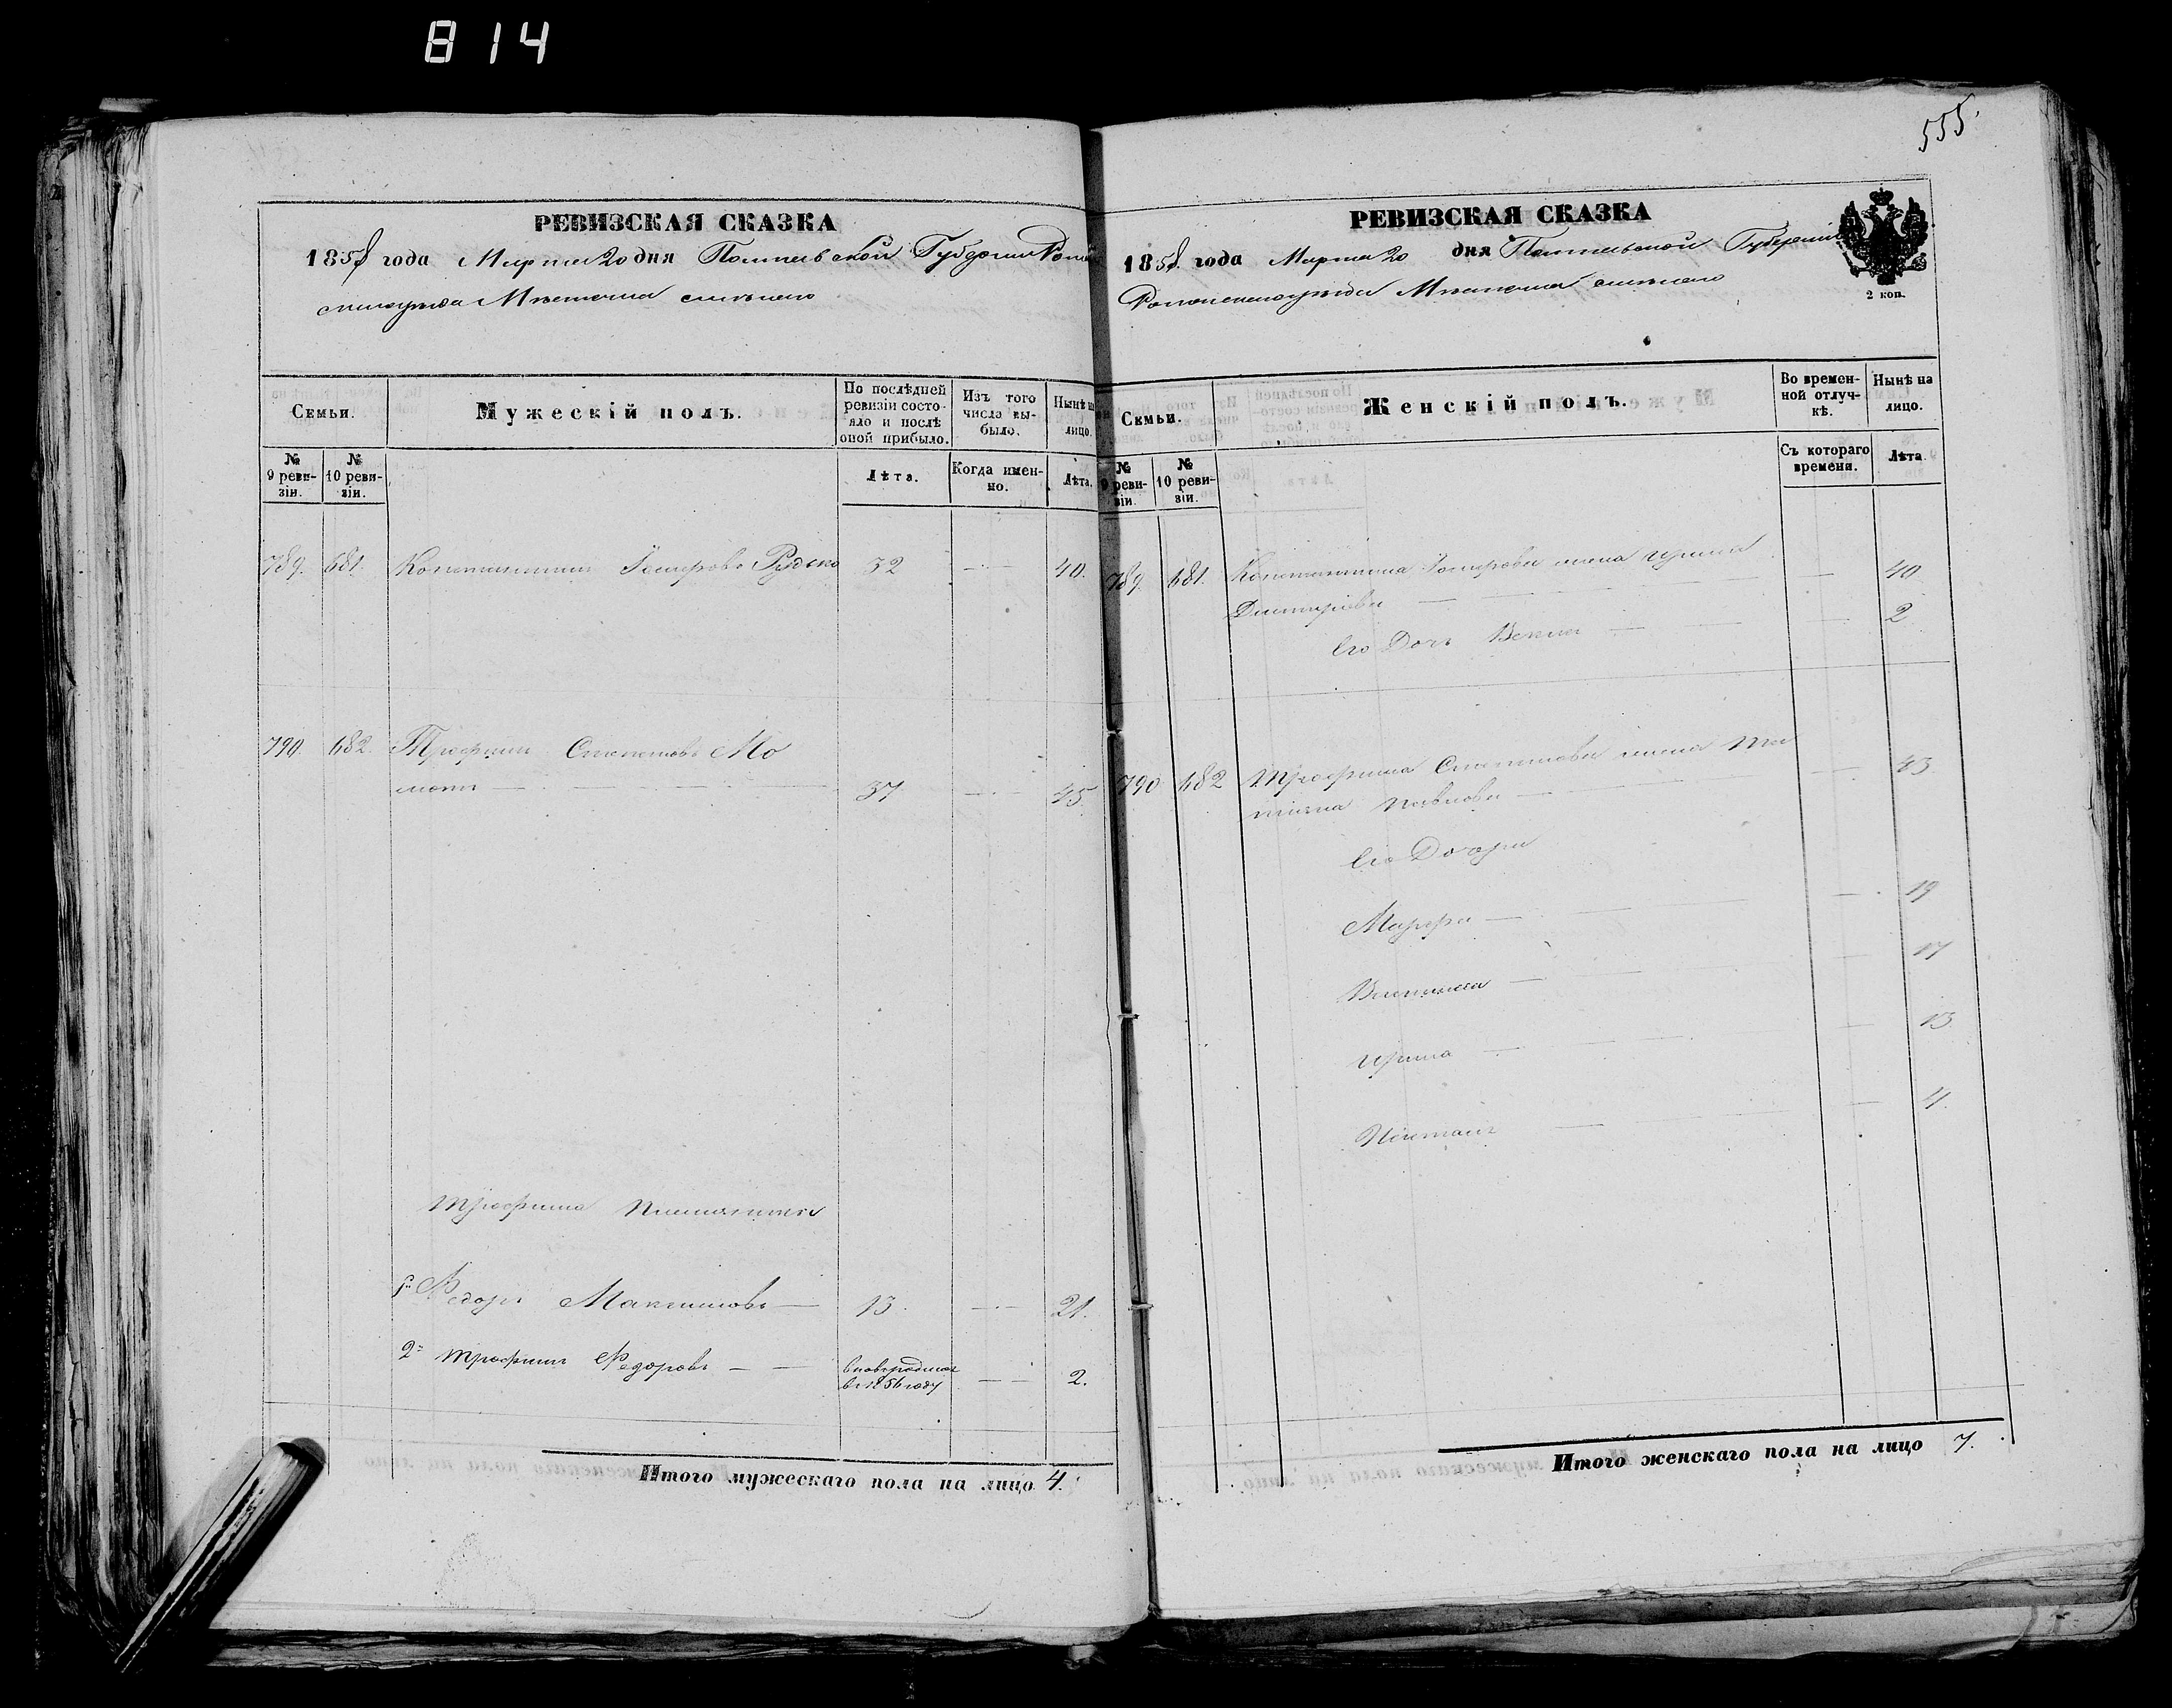 814
555.
РЕВИЗСКАЯ СКАЗКА
1858 года Марта 20 дня Полтавской Губернии Ромен
скаго уезда Местечка Смелаго
Семьи.
Мужескій полъ.
По послѣдней ревизіи состо-
яло и послѣ оной прибыло.
Изъ того числа вы-
было.
Нынѣ на лицо.
№ 9 реви-
зіи.
№ 10 реви-
зіи.
Лѣта.
Когда имен-
но.
Лѣта.
789. 681. Константинъ Рудько 32 — 40.
790. 682. Трофимъ Степановъ Мо
37 — 45.
Трофима племянники
1й Федоръ Максимовъ — 13. — 21.
2й Трофимъ Федоровъ — — вновьрожден
в 1856 году — 2.
Итого мужескаго пола на лицо 4.
РЕВИЗСКАЯ СКАЗКА
1858. года Марта 20 дня Полтавской Губернии
Роменскаго уезда Местечка Смелаго
2 коп.
Семьи.
Женскій полъ.
Во времен-
ной отлуч-
кѣ.
Нынѣ на лицо.
№ 9 реви-
зіи.
№ 10 реви-
зіи.
Съ котораго времени.
Лѣта.
789. 681. Константина жена Ирина
Дмитриева — — 40
Его Дочь Векла — — 2
790 682 Трофима Степанова жена Та
тіяна Павлова — — 43
Его Дочери
Марфа — — 19
Ирина — — 13
4.
Итого женскаго пола на лицо 7.